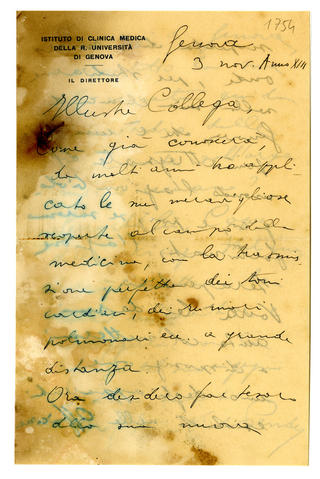 1754
ISTITUTO DI CLINICA MEDICA
DELLA R. UNIVERSITÀ
DI GENOVA
IL DIRETTORE
Genova
3 nov. Anno XIII
Illustre Collega,
Come già conoscerà,
da molti anni ho appli
cato le sue meravigliose
scoperte al campo della
medicina, con la trasmis
sione perfetta dei toni
cardiaci, dei rumori
polmonari ecc. a grande
distanza
Ora desidero far tesoro
della sua nuova